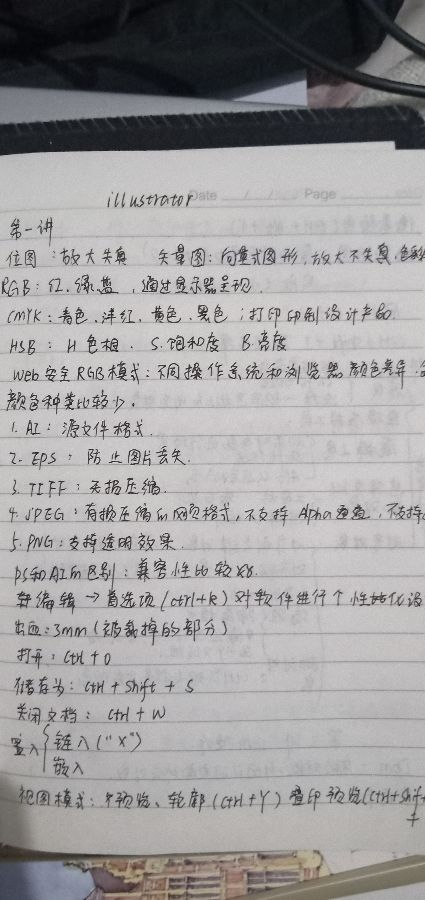 Date / / Page
illustrator
第一讲
位图：放大失真 矢量图：向量式图形，放大不失真，色彩
RGB：红、绿、蓝，通过显示器呈现
CMYK：青色、洋红、黄色、黑色；打印印刷设计产品.
HSB：H 色相. S.饱和度 B.亮度
Web安全RGB模式：不同操作系统和浏览器颜色差异，
颜色种类比较少.
1. AI：源文件格式.
2. EPS：防止图片丢失.
3. TIFF：无损压缩.
4. JPEG：有损压缩的网页格式，不支持 Alpha通道，不支持
5. PNG：支持透明效果.
PS和AI的区别：兼容性比较好.
编辑→首选项（ctrl+k）对软件进行个性化设
出血：3mm（被裁掉的部分）
打开：ctrl+O
储存为：ctrl+shift+S
关闭文档：ctrl+W
置入 链入（"X"）
嵌入
视图模式：预览、轮廓（ctrl+Y）叠印预览（ctrl+shift+